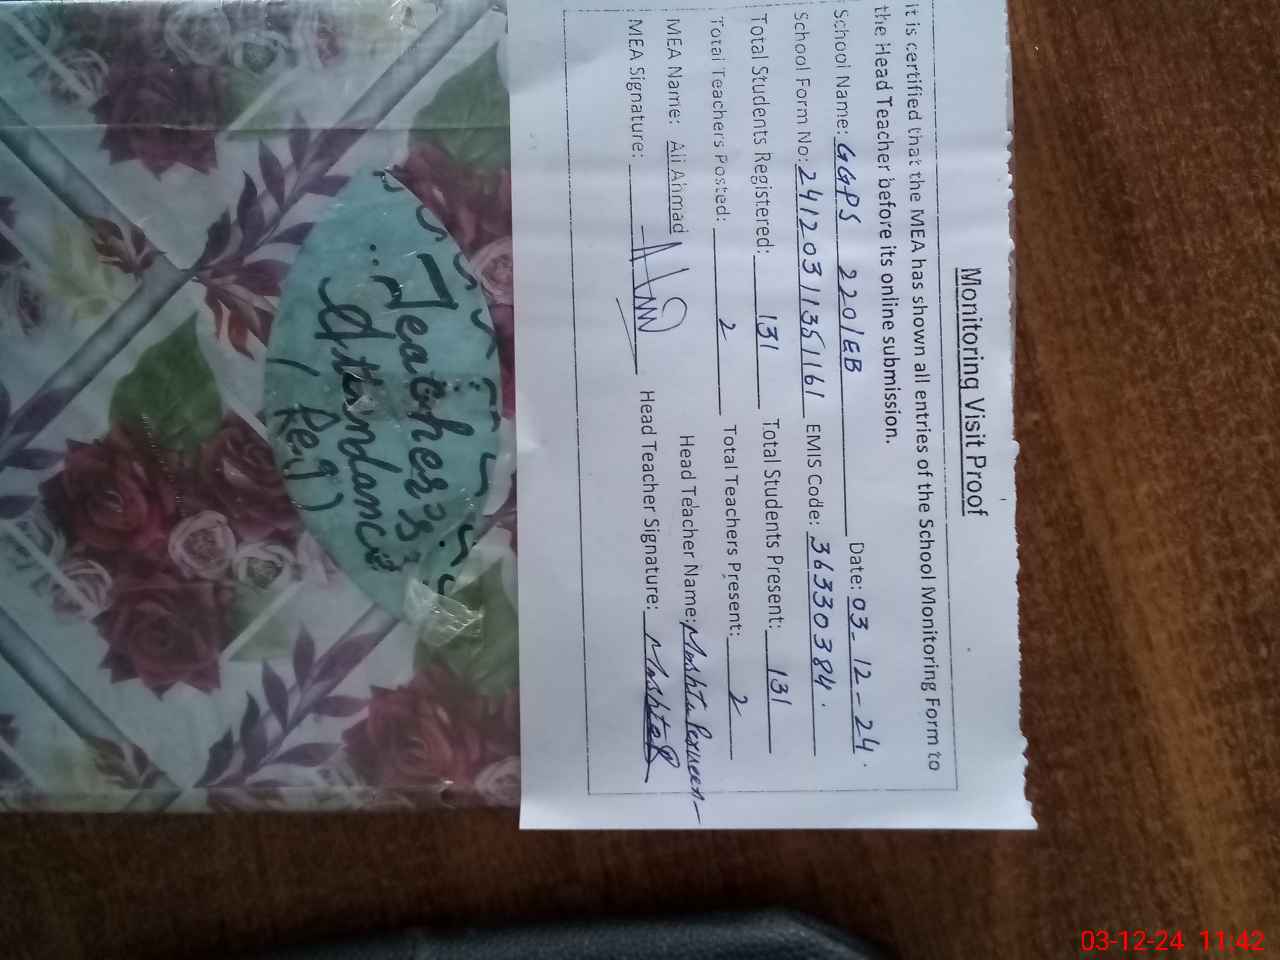 Monitoring Visit Proof
It is certified that the MEA has shown all entries of the School Monitoring Form to
the Head Teacher before its online submission.
School Name: GGPS 220/EB Date: 03-12-24.
School Form No: 24120311351161 EMIS Code: 36330384.
Total Students Registered: 131 Total Students Present: 131
Total Teachers Posted: 2 Total Teachers Present: 2
MEA Name: Ali Ahmad Head Teacher Name: Mashta Perveen
MEA Signature: Head Teacher Signature:
Teacher's
Attendance
(Reg)
03-12-24 11:42